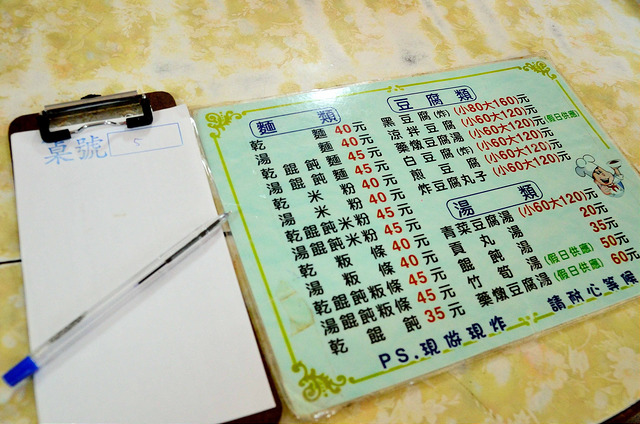 桌號
麵類
乾麵 40元
湯麵 40元
乾餛飩麵 45元
湯餛飩麵 45元
乾米粉 40元
湯米粉 40元
乾餛飩米粉 45元
湯餛飩米粉 45元
乾粄條 40元
湯粄條 40元
乾餛飩粄條 45元
湯餛飩粄條 45元
乾餛飩 35元
豆腐類
黑豆腐(炸) (小80大160)元
涼拌豆腐 (小60大120)元
藥燉豆腐湯 (小60大120)元(假日供應)
白豆腐(炸) (小60大120)元
煎豆腐 (小60大120)元
炸豆腐丸子 (小60大120)元
湯類
青菜豆腐湯 (小60大120)元
貢丸湯 20元
餛飩湯 35元
竹筍湯(假日供應) 50元
藥燉豆腐湯(假日供應) 60元
PS.現做現炸 請耐心等候